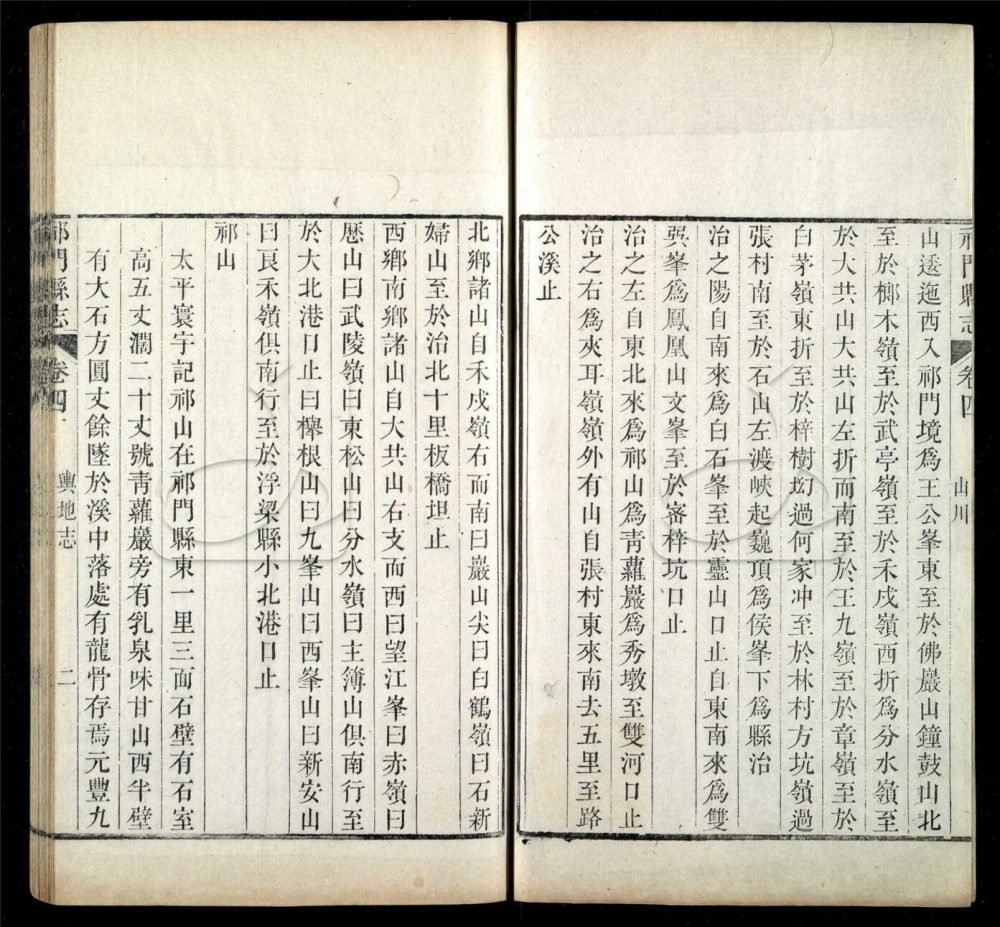 祁門縣志
卷四
山川
山逶迤西入祁門境爲王公峯東至於佛巖山鐘鼓山北
至於榔木嶺至於武亭嶺至於禾戍嶺西折爲分水嶺至
於大共山大共山左折而南至於王九嶺至於章嶺至於
白茅嶺東折至於梓樹㘭過何家冲至於林村方坑嶺過
張村南至於石山左渡峽起巍頂爲侯峯下爲縣治
治之陽自南來爲白石峯至於靈山口止自東南來爲雙
吳峯爲鳳凰山文峯至於審梓坑口止
治之左自東北來爲祁山爲青蘿巖爲秀墩至雙河口止
治之右爲夾耳嶺嶺外有山自張村東來南去五里至路
公溪止
北鄉諸山自禾戍嶺右而南曰巖山尖曰白鶴嶺曰石新
婦山至於治北十里板橋坦止
西鄉南鄉諸山自大共山右支而西曰望江峯曰赤嶺曰
歷山曰武陵嶺曰東松山曰分水嶺曰主簿山俱南行至
於大北港口止曰櫸根山曰九峯山曰西峯山曰新安山
曰良禾嶺俱南行至於浮梁縣小北港口止
祁山
太平寰宇記祁山在祁門縣東一里三面石壁有石室
高五丈濶二十丈號青蘿巖旁有乳泉味甘山西半壁
有大石方圓丈餘墜於溪中落處有龍骨存焉元豐九
祁門縣志
卷四
輿地志
二